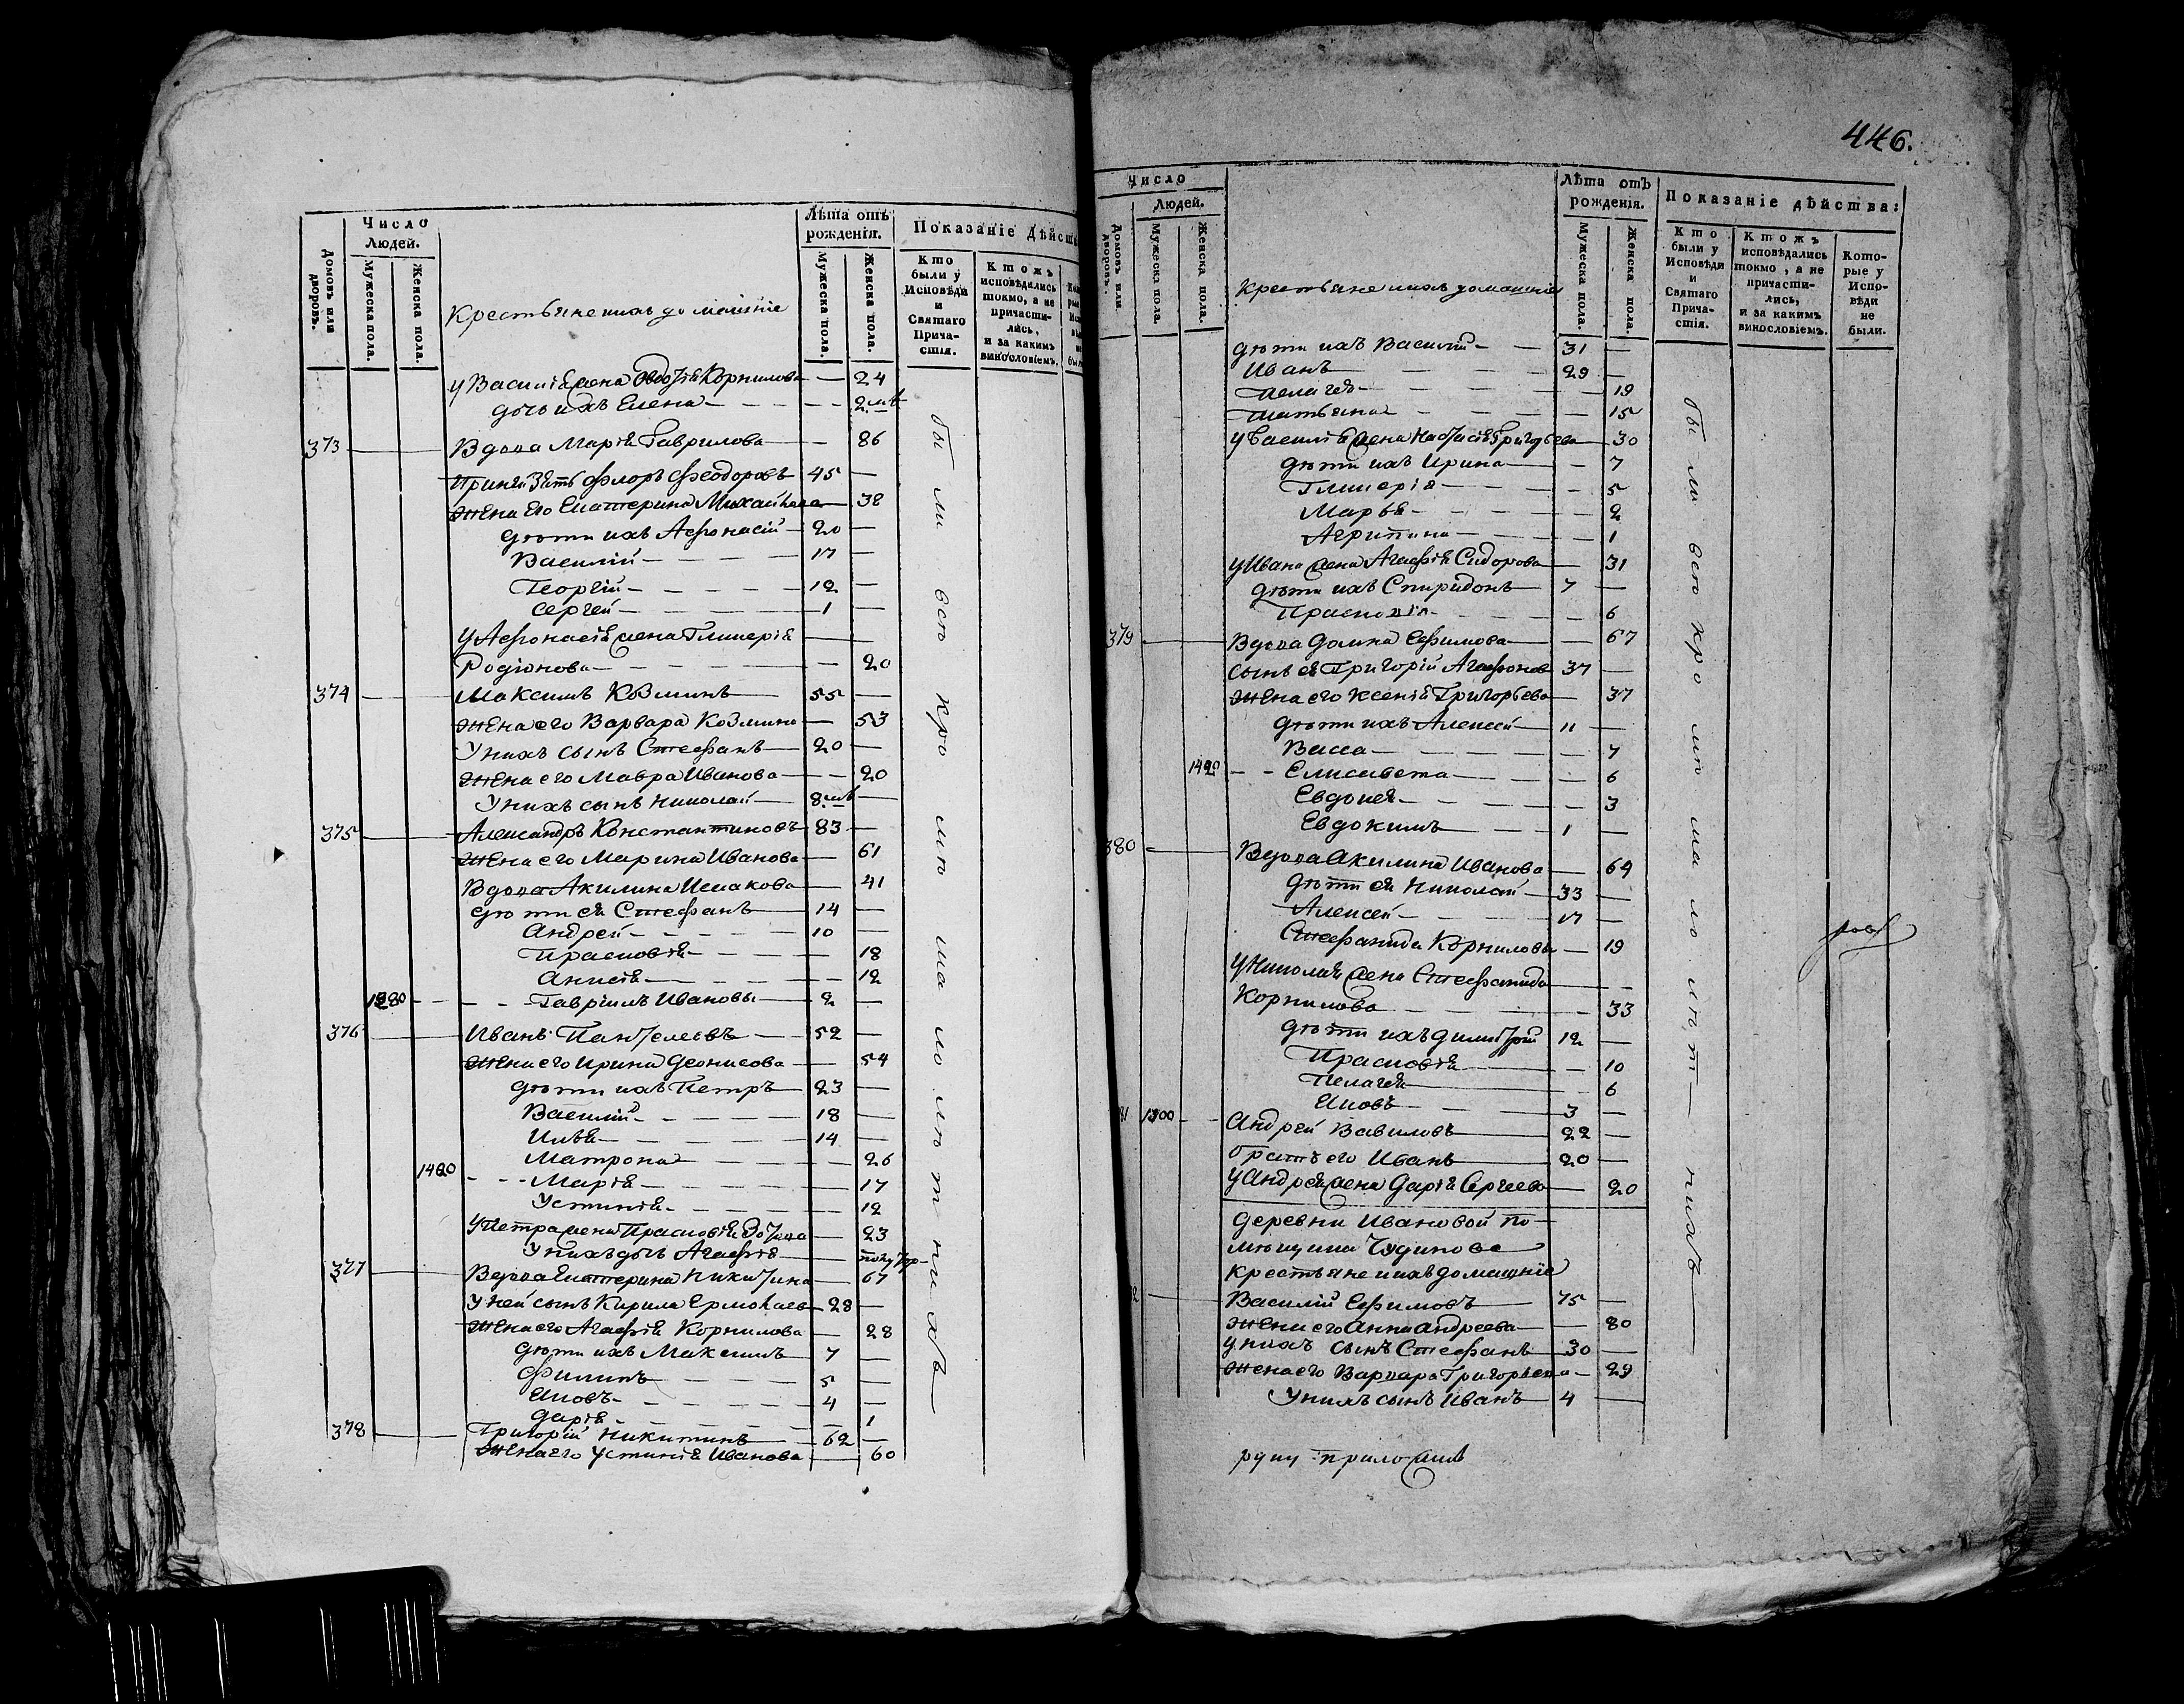 Число
Людей.
Домовъ или дворовъ.
Мужеска пола.
Женска пола.
Крестьяне ихъ домашніе
Лѣта отъ
рожденія.
Мужеска пола.
Женска пола.
Показаніе дѣйств
Кто были у Исповѣди и Святаго Причастія.
Ктожъ исповѣдались токмо, а не причастились, и за какимъ винословіемъ.
у Василія жена Овдотія Корнилова — 24
дочь ихъ Елена 2 мѣ
373 Вдова Марія Гаврилова — 86
Принят Зять Флоръ Феодоровъ 45 —
Жена Его Екатерина Михайлова — 38
дѣти ихъ Афонасій 20 —
Василій 17 —
Георгій 12 —
Сергей 1 —
У Афонасія жена Гликерія
Родіонова — 20
374 Максимъ Козминъ 55 —
Жена его Варвара Козмина — 53
У нихъ сынъ Стефанъ 20 —
Жена его Мавра Иванова — 20
У нихъ сынъ Николай 8 мѣ —
375 Александръ Константиновъ 83 —
Жена его Марина Иванова — 61
Вдова Акилина Исакова — 41
дѣти ея Стефанъ 14 —
Андрей 10 —
Прасковія 18
Анисія 12
1380 Гавріилъ Ивановы 2 —
376 Иванъ Пантелеевъ 52 —
Жена его Ирина Деонисова — 54
дѣти ихъ Петръ 23 —
Василій 18 —
Илья 14 —
Матрона — 26
1480 Марія — 17
Устинія 12
У Петра жена Прасковія — 23
У нихъ дочь Агафія
377 Вдова Екатерина Никитина — 67
У ней сынъ Кирила Ермолаев 28 —
Жена его Агафія Корнилова — 28
дѣти ихъ Максимъ 7 —
Филипъ 5 —
Иовъ 4 —
Дарія 1
378 Григорій Никитинъ 62 —
Жена его Устинія Иванова — 60
бы ли всѣ кро мѣ ма ло лѣ т ни хъ
446.
Число
Людей.
Домовъ или дворовъ.
Мужеска пола.
Женска пола.
Крестьяне ихъ домашніе
Лѣта отъ
рожденія.
Мужеска пола.
Женска пола.
Показаніе дѣйства:
Кто были у Исповѣди и Святаго Причастія.
Ктожъ исповѣдались токмо, а не причастились, и за какимъ винословіемъ.
Которые у Исповѣди не были.
дѣти ихъ Василій 31 —
Иванъ 29 —
Пелагея 19
Татьяна 15
у Василія жена Настасія Григорьева 30
дѣти ихъ Ирина — 7
Гликерія 5
Марья 2
Агрипина 1
у Ивана жена Агафія Сидорова 31
дѣти ихъ Спиридонъ 7 —
Прасковія 6
379 Вдова Домна Ефимова — 67
сынъ ея Григорій Агафонов 37 —
Жена его Ксенія Григорьева — 37
дѣти ихъ Алексей 11 —
Васса 7
1490 Елисавета 6
Евдокея 3
Евдокимъ 1 —
380 Вдова Акилина Иванова — 64
дѣти ея Николай 33 —
Алексей 17 —
Стефанида Корниловы — 19
У Николая жена Стефанида
Корнилова 33
дѣти ихъ Димитрій 12 —
Прасковія 10
Пелагея 6
Иовъ 3 —
81 1300 Андрей Вавиловъ 22 —
братъ его Иванъ 20 —
У Андрея жена Дарія Сергеева — 20
Деревни Ивановой по-
мѣщика Чудинова
крестьяне и ихъ домашніе
2 Василій Ефимовъ 75 —
Жена его Анна Андреева — 80
у нихъ сынъ Стефанъ 30 —
Жена его Варвара Григорьева — 29
У нихъ сынъ Иванъ 4 —
бы ли всѣ кро мѣ ма ло лѣ т нихъ
руку приложилъ